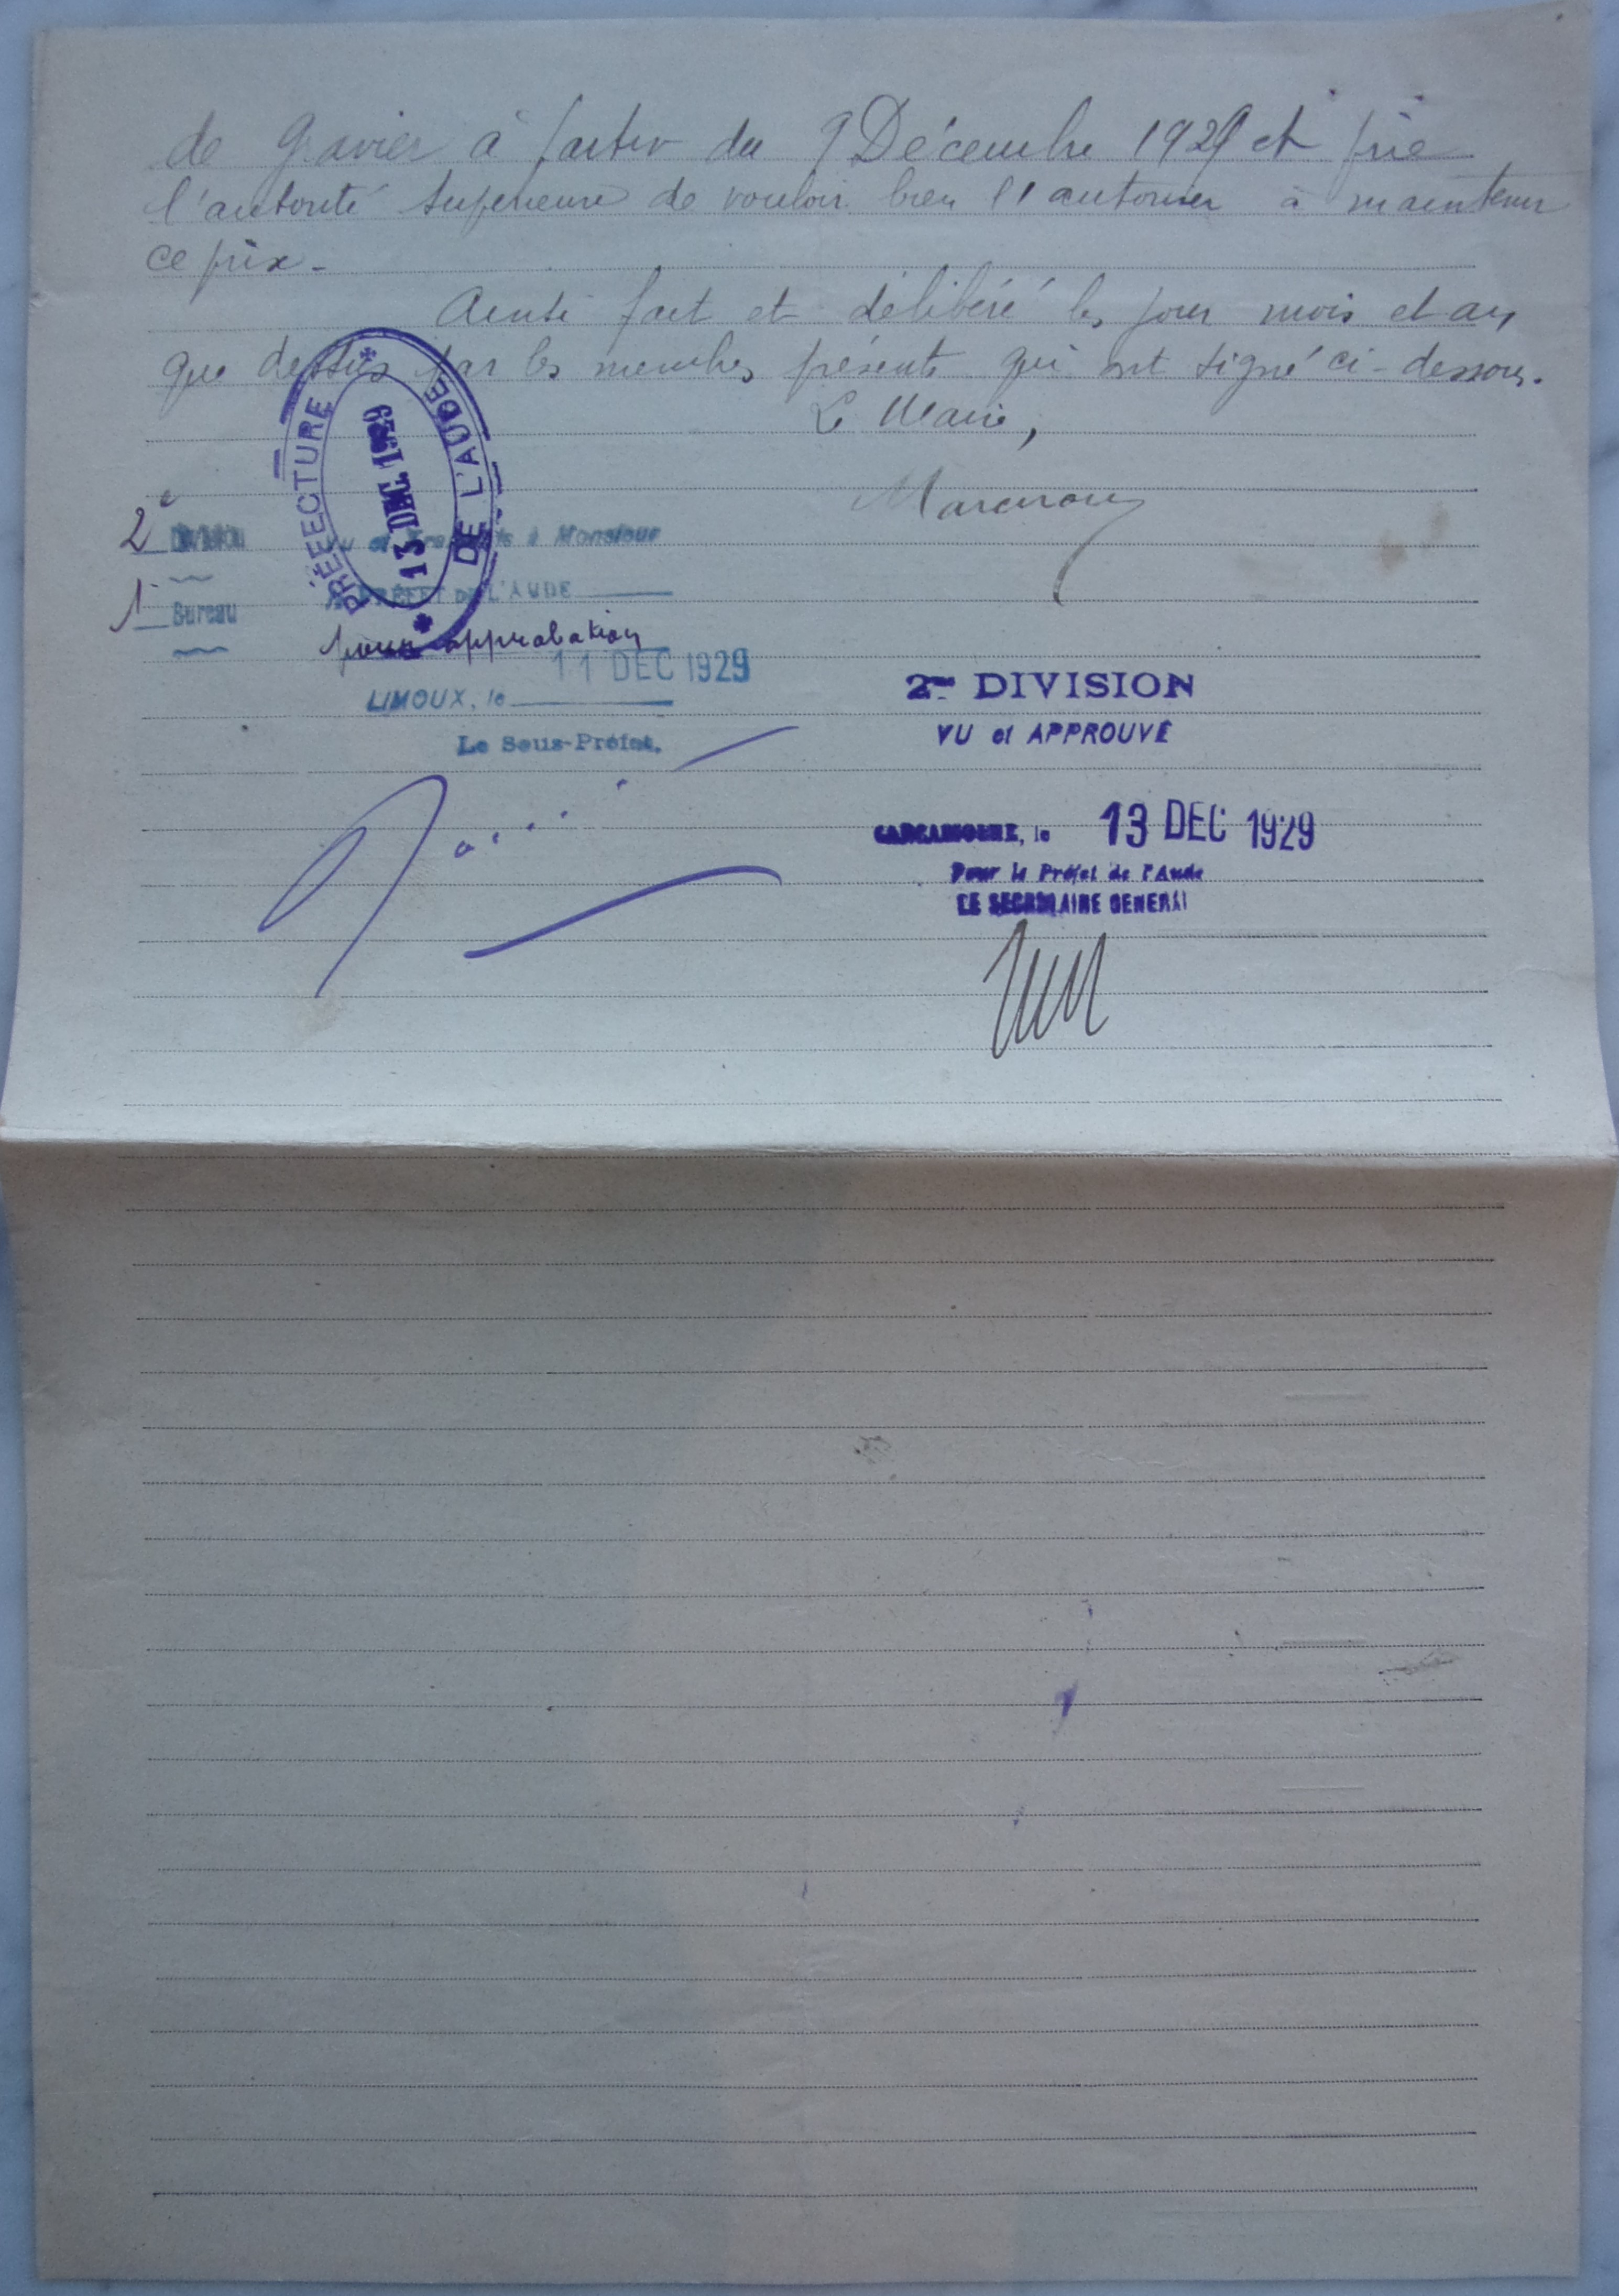 de Gravier à partir du 9 Décembre 1929 et prie
l'autorité Supérieure de vouloir bien l'autoriser à maintenir
ce prix -
Ainsi fait et délibéré les jour mois et an
que dessus par les membres présents qui ont signé ci-dessous.
Le Maire,
PRÉFECTURE DE L'AUDE
13 DEC 1929
2e DIVISION
Vu et Transmis à Monsieur
1er Bureau
le PRÉFET DE L'AUDE
pour approbation
LIMOUX, le 11 DEC 1929
Le Sous-Préfet.
2me DIVISION
VU et APPROUVÉ
CARCASSONNE, le 13 DEC 1929
Pour le Préfet de l'Aude
LE SECRETAIRE GENERAL